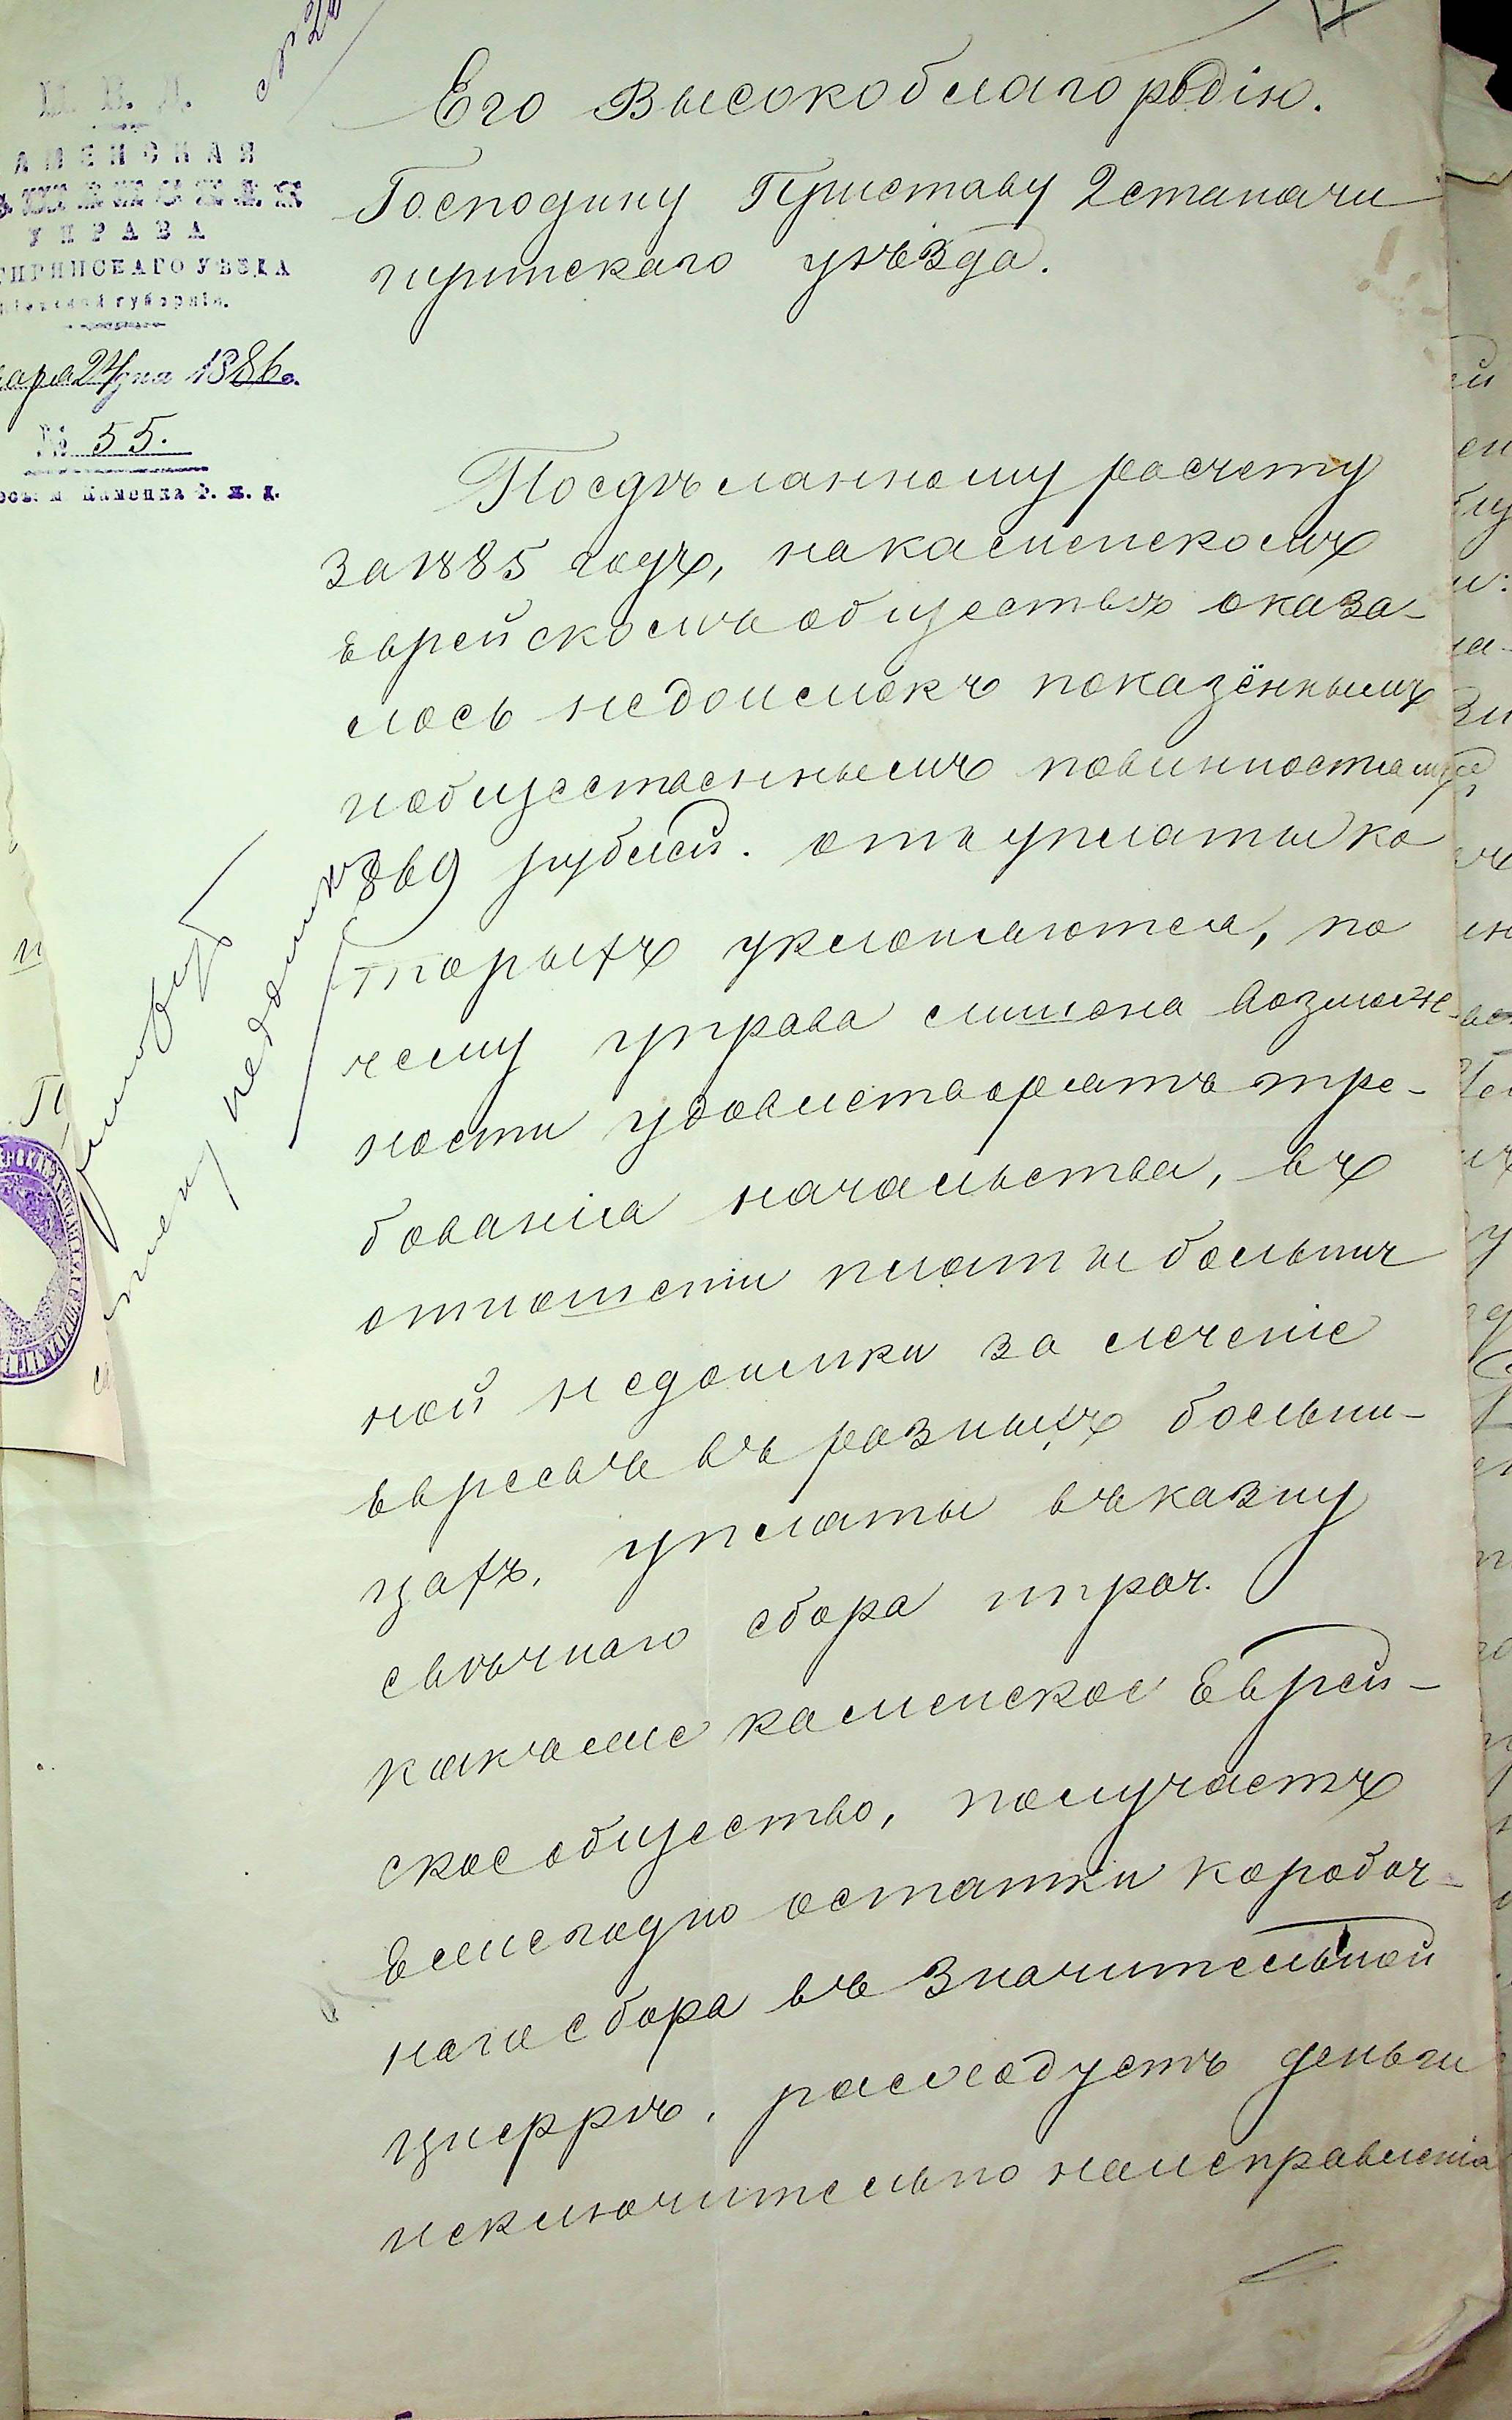 М. В. Д.
КАМЕНСКАЯ
УПРАВА
ЧИГИРИНСКАГО УѢЗДА
губерніи.
24 дня 1886 г.
№ 55.
Каменка Ф. ж. д.
17
Его Высокоблагородію.
Господину Приставу 2 стана чи
гиринскаго уѣзда.
По сдѣланному расчету
за 1885 годъ, на каменскомъ
еврейскомъ обществѣ оказа-
лось недоимокъ по казённымъ
и общественнымъ повинностямъ
869 рублей. отъ уплаты ко
торыхъ уклоняются, по
чему управа лишена возмож-
ности удовлетворять тре-
бованія начальства, въ
отношеніи платы больнич
ной недоимки за леченіе
евреевъ въ разныхъ больни-
цахъ, уплаты въ казну
свѣчнаго сбора и проч.
какъ же каменское Еврей-
ское общество, получаетъ
ежегодно остатки коробоч-
наго сбора въ значительной
цифрѣ, расходуетъ деньги
исключительно на исправленія
недоимку